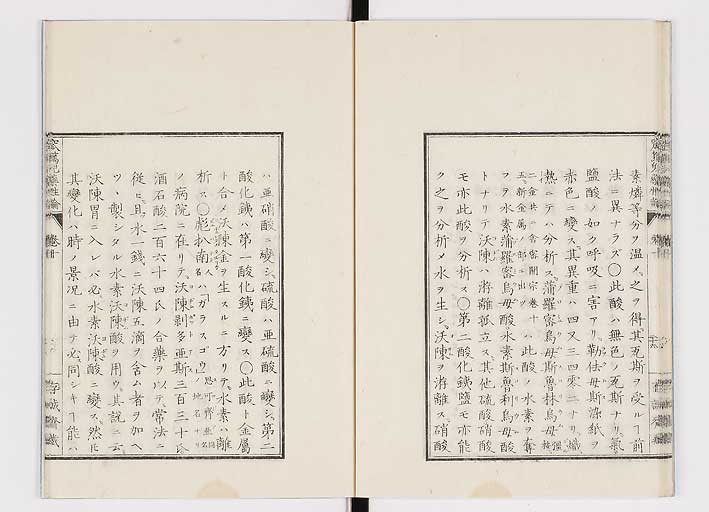 素燐等分ヲ温メ之ヲ得其瓦斯ヲ受ルヿ前
法ニ異ナラズ〇此酸ハ無色ノ瓦斯ナリ氣
鹽酸ノ如ク呼吸ニ害アリ勒佉母斯染紙ヲ
赤色ニ變ス其異重ハ四又三四零二ナリ熾
熱ニテハ分析ス蒲羅密烏母斯魯林烏母
五新金属ノ部ニ出ヅ
ニ金共ニ舎密開宗巻十
此酸ノ水素ヲ奪
フヲ水素蒲羅密烏母酸水素斯魯利烏母酸
トナリテ沃陳ハ游離孤立ス其他硫酸硝酸
モ亦此酸ヲ分析ス〇第二酸化銕鹽モ亦能
ク之ヲ分析メ水ヲ生シ沃陳ヲ游離ス硝酸
ハ亜硝酸ニ變シ硫酸ハ亜硫酸ニ變シ第二
酸化銕ハ第一酸化銕ニ變ス〇此酸ト金属
ト合メ沃陳金ヲ生スルニ方リテ水素ハ離
析ス〇彪扒南ハ「ガラスゴウ」
ノ地名ナリ
ノ病院ニ在リテ沃陳剥多亜斯三百三十氐
酒石酸二百六十四氐ノ合藥ヲ以テ常法ニ
從ヒ且水一錢ニ沃陳五滴ヲ含ム者ヲ加ヘ
ツヽ製シタル水素沃陳酸ヲ用ウ其説ニ云
沃陳胃ニ入レバ必水素沃陳酸ニ變ス然𪜈
其變化ハ時ノ景况ニ由テ必同シキヿ能ハ